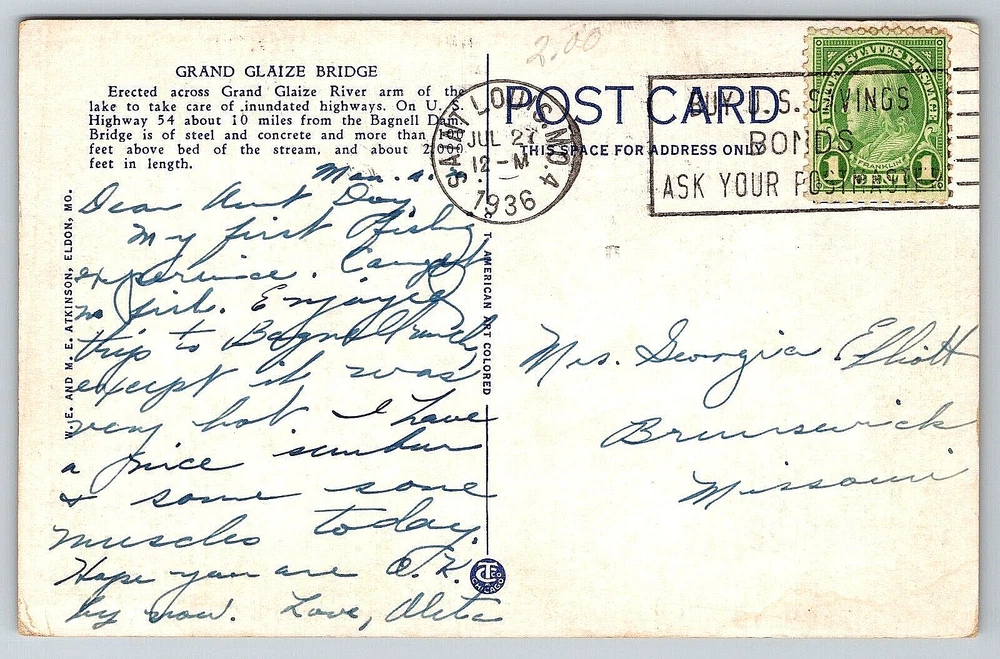 2.00
GRAND GLAIZE BRIDGE
Erected across Grand Glaize River arm of the
lake to take care of inundated highways. On U. S.
Highway 54 about 10 miles from the Bagnell Dam.
Bridge is of steel and concrete and more than
feet above bed of the stream, and about 2000
feet in length.
W. E. AND M. E. ATKINSON, ELDON, MO.
POST CARD
THIS SPACE FOR ADDRESS ONLY
SAINT LOUIS, MO. 4
JUL 27
12 - M
1936
BUY U.S. SAVINGS
BONDS
ASK YOUR POSTMASTER
UNITED STATES POSTAGE
FRANKLIN
1 1
AMERICAN ART COLORED
CHICAGO
Mon. a.
Dear Aunt
My first fishing
experience. Caught
no fish. Enjoyed
trip to Bagnell much,
except it was
very hot. I have
a nice sunburn
& some sore
muscles today.
Hope you are O.K.
by now. Love, Oleta
Mrs. Georgia Elliott
Brunswick
Missouri